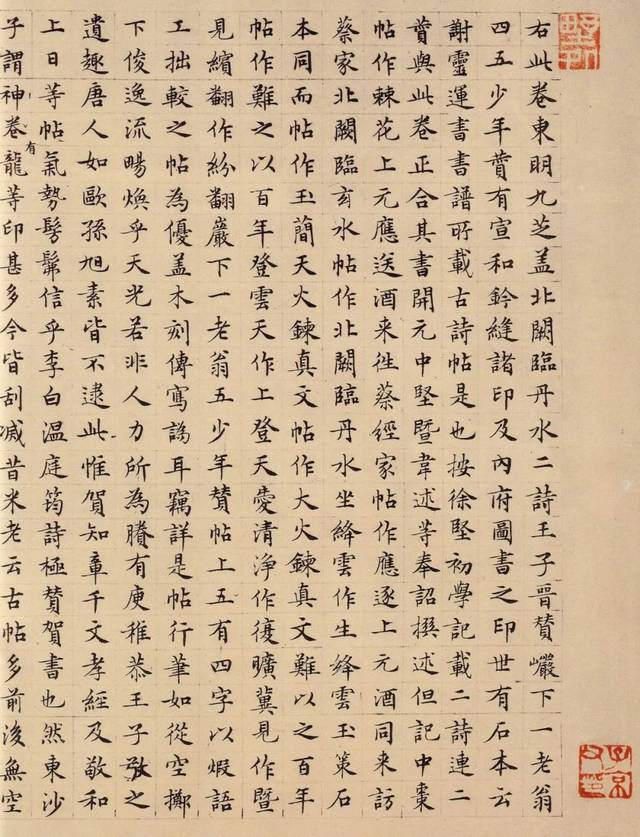 右此卷東明九芝盖北闕臨丹水二詩王子晉贊巗下一老翁
四五少年賛有宣和鈐縫諸印及內府圖書之印世有石本云
謝靈運書書譜所載古詩帖是也按徐堅初學記載二詩連二
賛與此卷正合其書開元中堅暨韋述等奉詔撰述但記中棗
帖作棘花上元應送酒来徃蔡經家帖作應逐上元酒同来訪
蔡家北闕臨亥水帖作北闕臨丹水坐絳雲作生絳雲玉䇿石
本同而帖作玉簡天火鍊真文帖作大火鍊真文難以之百年
帖作難之以百年登雲天作上登天愛清淨作復曠冀見作暨
見繽翻作紛翻巖下一老翁五少年贊帖上五有四字以煆語
工拙較之帖為優盖木刻傳寫譌耳竊詳是帖行筆如從空擲
下俊逸流暢煥乎天光若非人力所為騰有庾稚恭王子敬之
遺趣唐人如歐孫旭素皆不逮此惟賀知章千文孝經及敬和
上日等帖氣勢髣髴信乎李白溫庭筠詩極贊賀書也然東沙
子謂卷有神龍等印甚多今皆刮滅昔米老云古帖多前後無空
子京父印